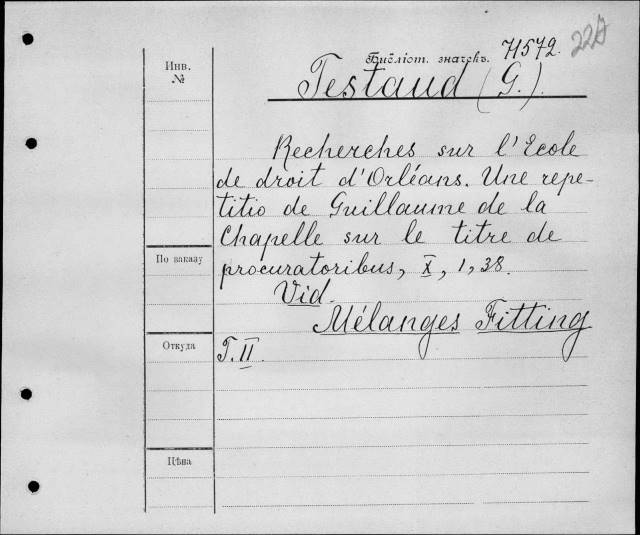 Инв. №
Библіот. значекъ. 71572.
Testaud (G.).
Recherches sur l'Ecole
de droit d'Orléans. Une repe-
titio de Guillaume de la
Chapelle sur le titre de
procuratoribus, X, 1, 38.
Vid.
Mélanges Fitting
T. II.
По заказу
Откуда
Цѣна